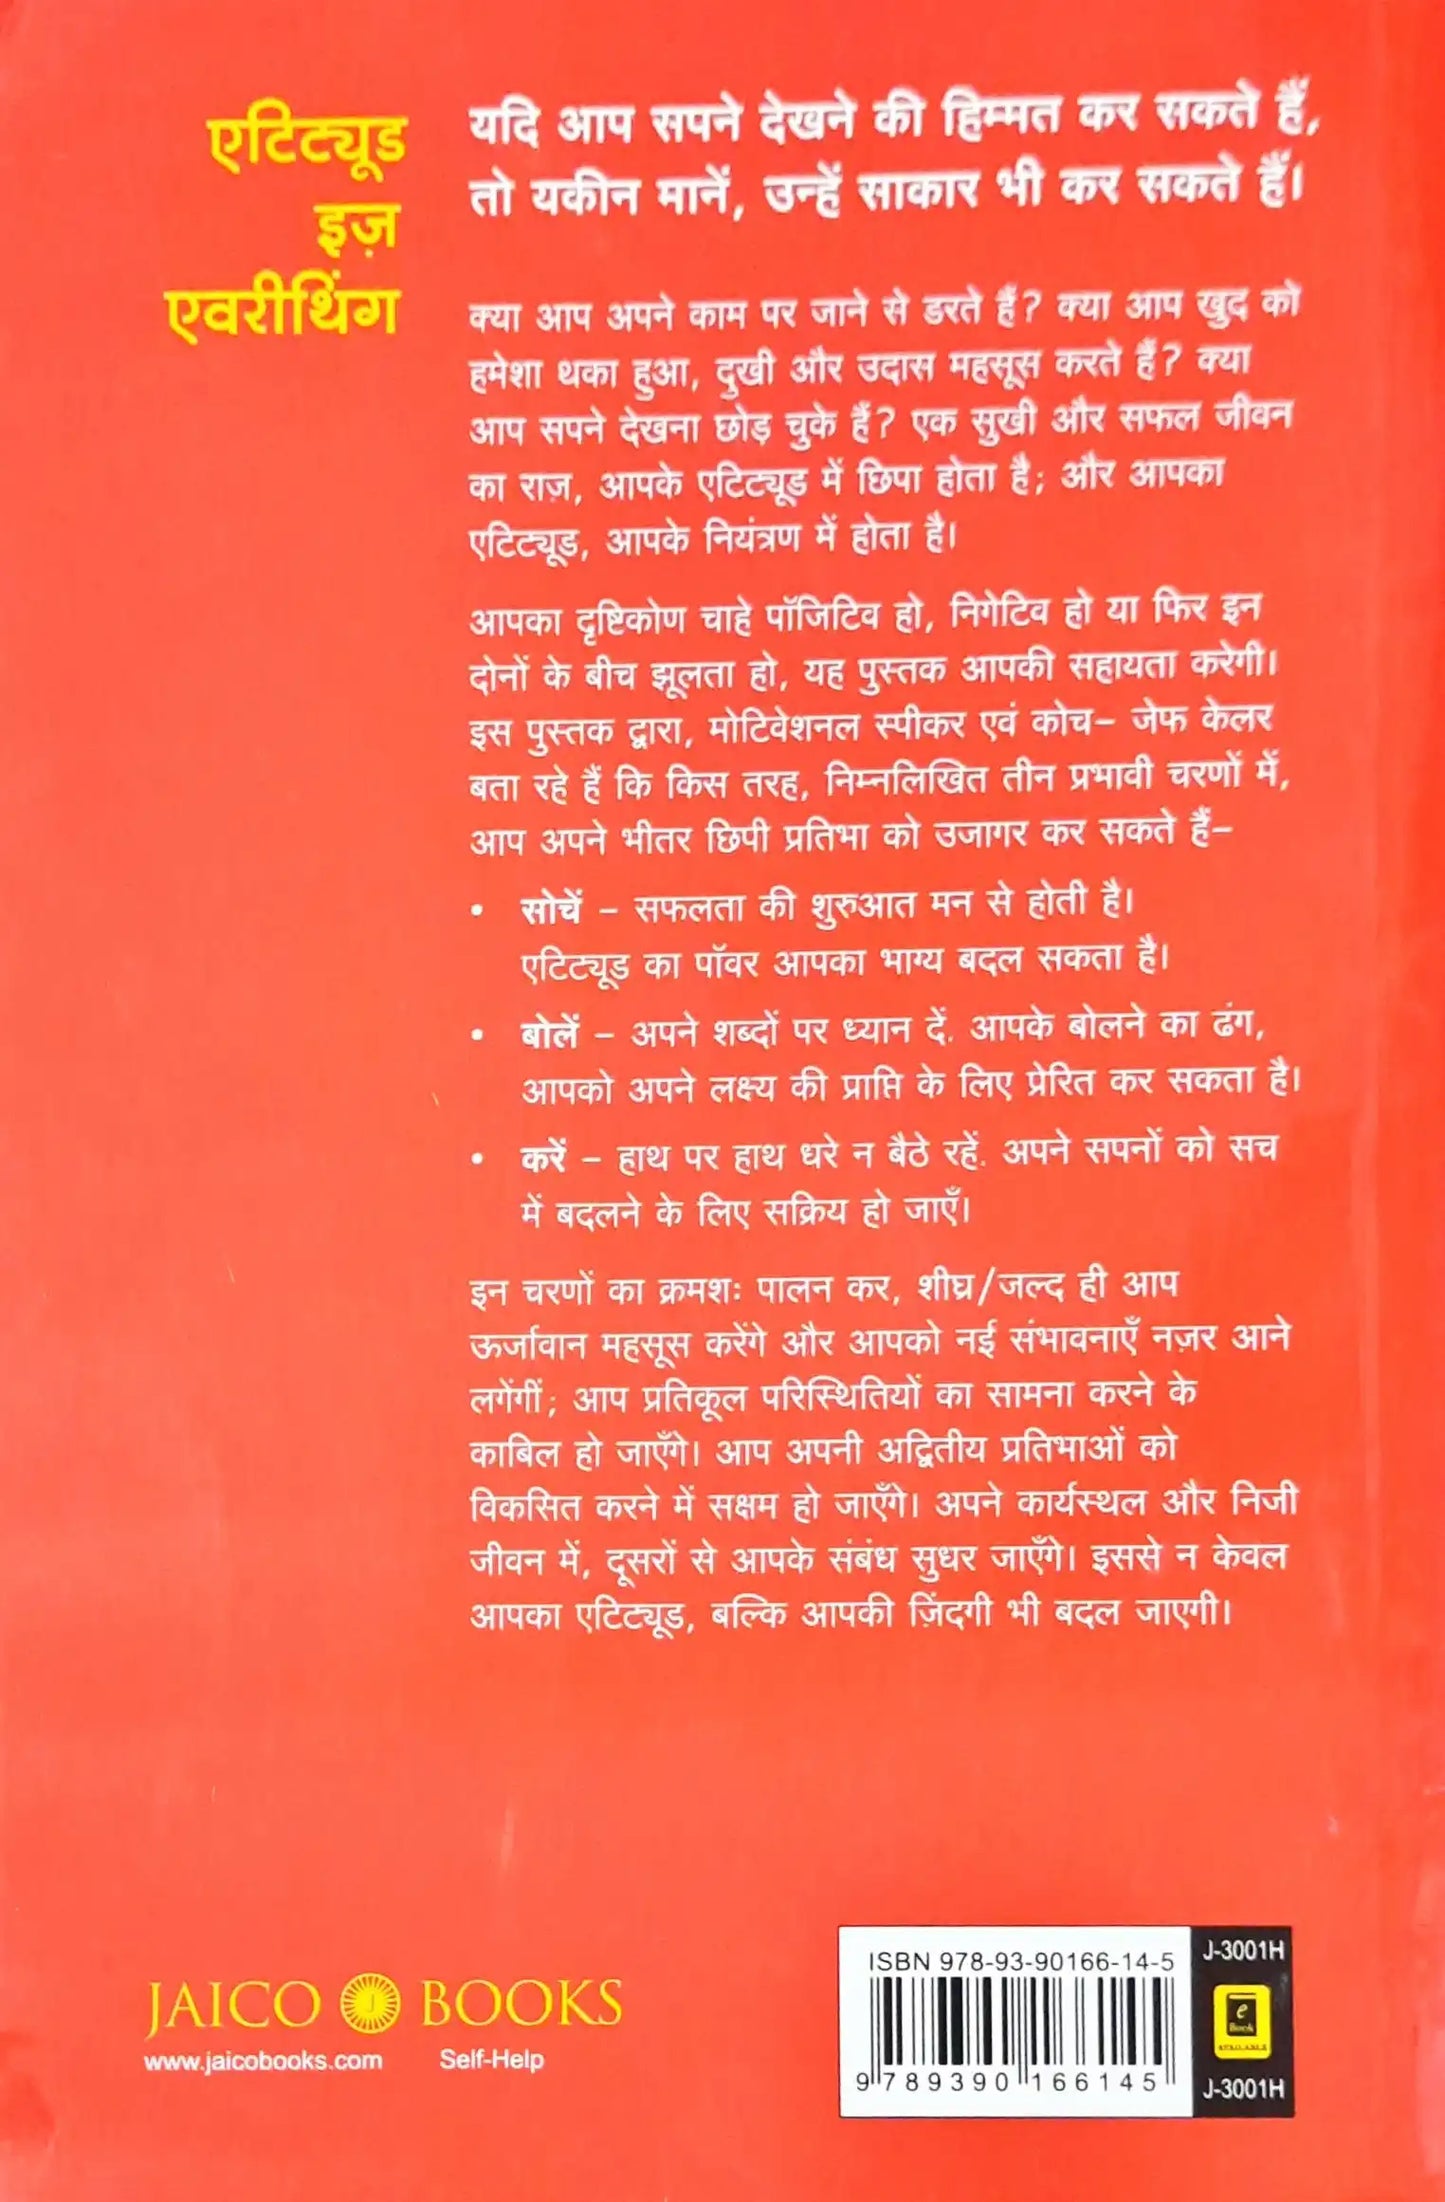 एटिट्यूड
इज़
एवरीथिंग
यदि आप सपने देखने की हिम्मत कर सकते हैं,
तो यकीन मानें, उन्हें साकार भी कर सकते हैं।
क्या आप अपने काम पर जाने से डरते हैं? क्या आप खुद को
हमेशा थका हुआ, दुखी और उदास महसूस करते हैं? क्या
आप सपने देखना छोड़ चुके हैं? एक सुखी और सफल जीवन
का राज़, आपके एटिट्यूड में छिपा होता है; और आपका
एटिट्यूड, आपके नियंत्रण में होता है।
आपका दृष्टिकोण चाहे पॉजिटिव हो, निगेटिव हो या फिर इन
दोनों के बीच झूलता हो, यह पुस्तक आपकी सहायता करेगी।
इस पुस्तक द्वारा, मोटिवेशनल स्पीकर एवं कोच– जेफ केलर
बता रहे हैं कि किस तरह, निम्नलिखित तीन प्रभावी चरणों में,
आप अपने भीतर छिपी प्रतिभा को उजागर कर सकते हैं–
• सोचें – सफलता की शुरुआत मन से होती है।
एटिट्यूड का पॉवर आपका भाग्य बदल सकता है।
• बोलें – अपने शब्दों पर ध्यान दें. आपके बोलने का ढंग,
आपको अपने लक्ष्य की प्राप्ति के लिए प्रेरित कर सकता है।
• करें – हाथ पर हाथ धरे न बैठे रहें. अपने सपनों को सच
में बदलने के लिए सक्रिय हो जाएँ।
इन चरणों का क्रमशः पालन कर, शीघ्र/जल्द ही आप
ऊर्जावान महसूस करेंगे और आपको नई संभावनाएँ नज़र आने
लगेंगीं; आप प्रतिकूल परिस्थितियों का सामना करने के
काबिल हो जाएँगे। आप अपनी अद्वितीय प्रतिभाओं को
विकसित करने में सक्षम हो जाएँगे। अपने कार्यस्थल और निजी
जीवन में, दूसरों से आपके संबंध सुधर जाएँगे। इससे न केवल
आपका एटिट्यूड, बल्कि आपकी ज़िंदगी भी बदल जाएगी।
JAICO J BOOKS
www.jaicobooks.com Self-Help
ISBN 978-93-90166-14-5
9 789390 166145
J-3001H
e
Book
AVAILABLE
J-3001H